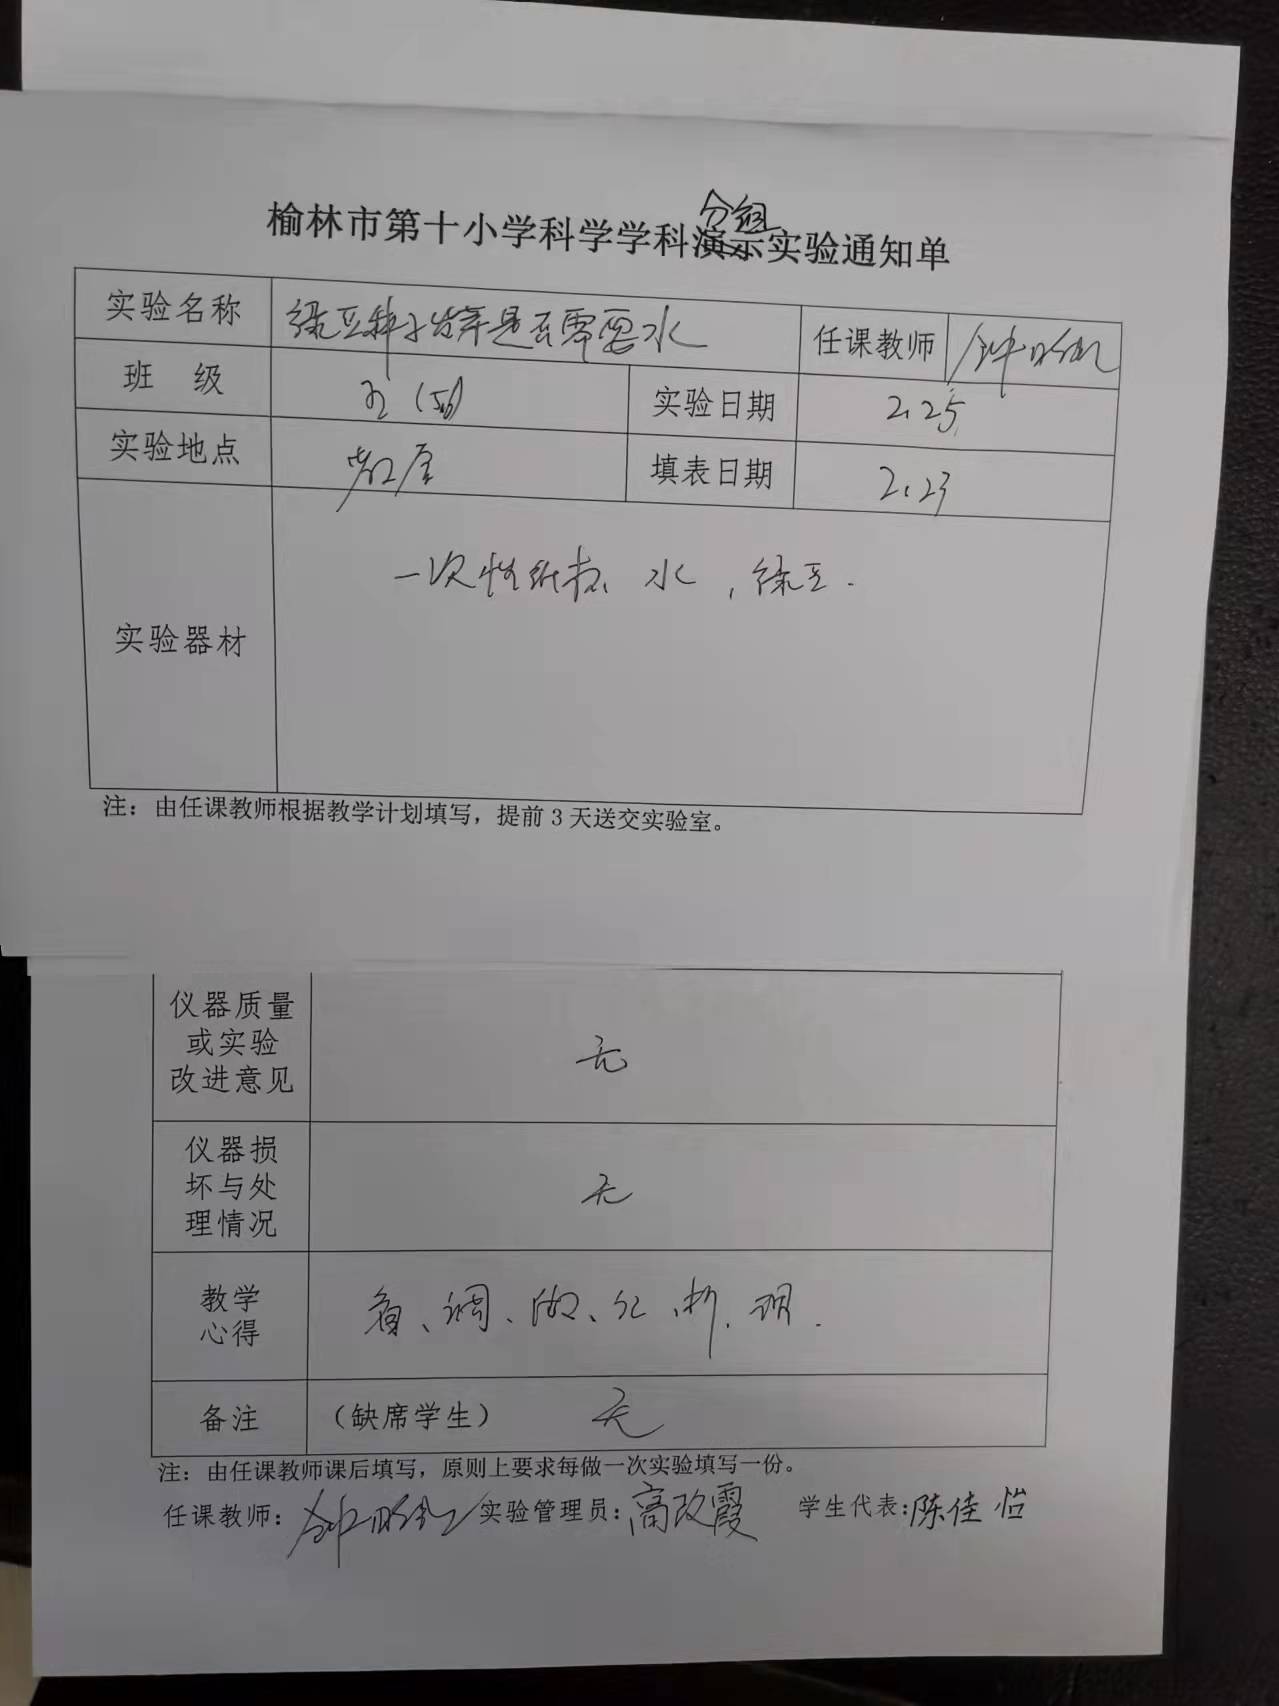 榆林市第十小学科学学科演示实验通知单
分组
实验名称 绿豆种子发芽是否需要水 任课教师
班 级 五（5） 实验日期 2.25
实验地点 教室 填表日期 2.23
实验器材 一次性纸杯、水，绿豆.
注：由任课教师根据教学计划填写，提前3天送交实验室。
仪器质量
或实验
改进意见 无
仪器损
坏与处
理情况 无
教学
心得
备注 （缺席学生） 无
注：由任课教师课后填写，原则上要求每做一次实验填写一份。
任课教师： 实验管理员：高改霞 学生代表：陈佳怡